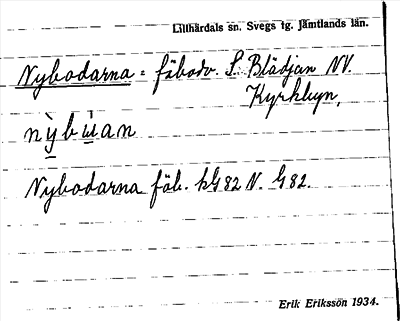 Lillhärdals sn. Svegs tg. Jämtlands län.
Nybodarna = fäbodv. S. Blädjan NV.
Kyrkbyn,
nỳbùan
Nybodarna fäb. hG82 N. G82.
Erik Eriksson 1934.